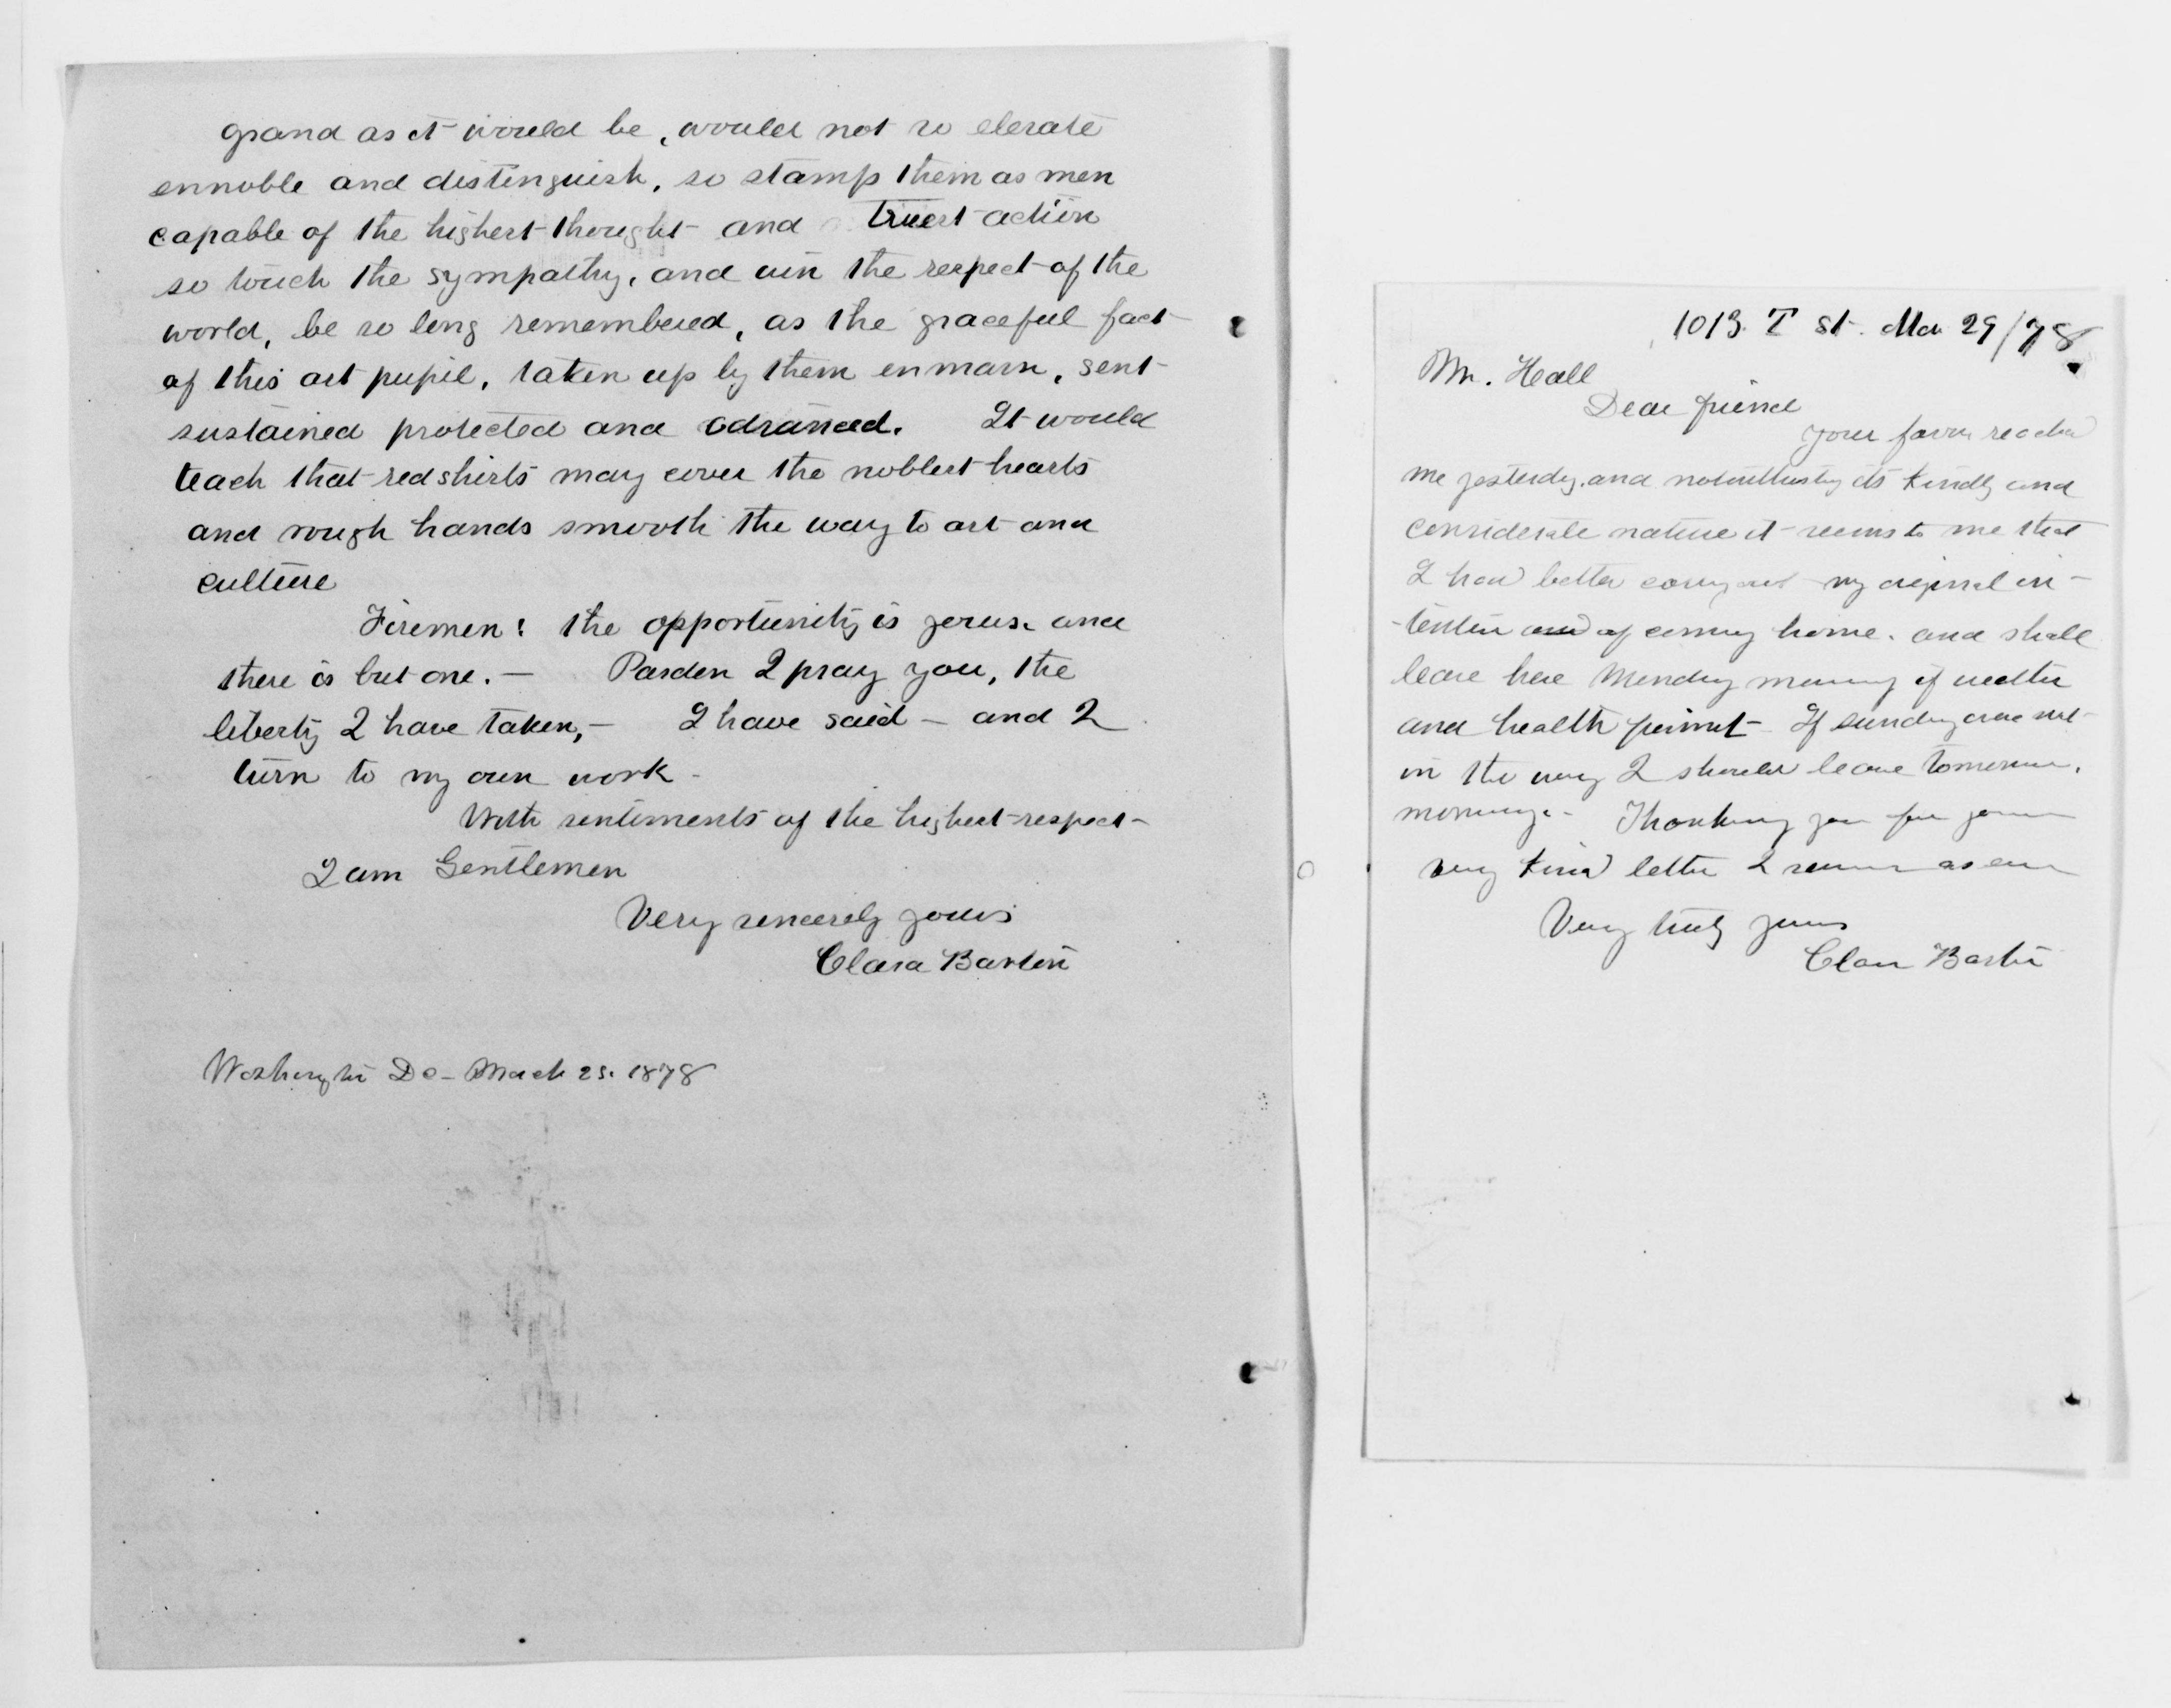 grand as it would be, would not so elevate
ennoble and distinguish, so stamp them as men
capable of the highest thought and truest action
so touch the sympathy, and win the respect of the
world, be so long remembered, as the graceful fact
of this art pupil, taken up by them en masse, sent
sustained protected and advanced. It would
teach that red shirts may cover the noblest hearts
and rough hands smooth the way to art and
culture
Firemen! the opportunity is yours. and
there is but one. — Pardon I pray you, the
liberty I have taken, — I have said — and I
turn to my own work -
With sentiments of the highest respect -
I am Gentlemen
Very sincerely yours
Clara Barton
Washington Dc - March 25. 1878
1013. T St. Mar 29/78
Mr. Hall
Dear friend
your favor reached
me yesterday. and notwithstdg its kindly and
considerate nature it seems to me that
I had better carry out my original in-
-tention of coming home. and shall
leave here Monday morning if weather
and health permit - If Sunday were not
in the way I should leave tomorrow.
morning. - Thanking you for your
very kind letter I remain as ever
Very truly yours
Clara Barton